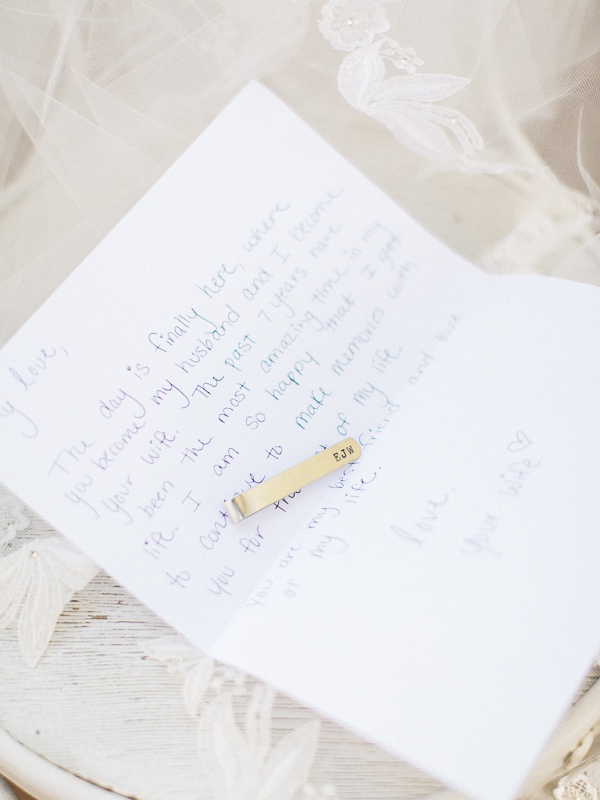 y love,
The day is finally here, where
you become my husband and I become
your wife. The past 7 years have
been the most amazing time in my
life. I am so happy that I get
to continue to make memories with
you for the rest of my life.
You are my best friend and love
of my life.
love,
your wife ♡
EJW